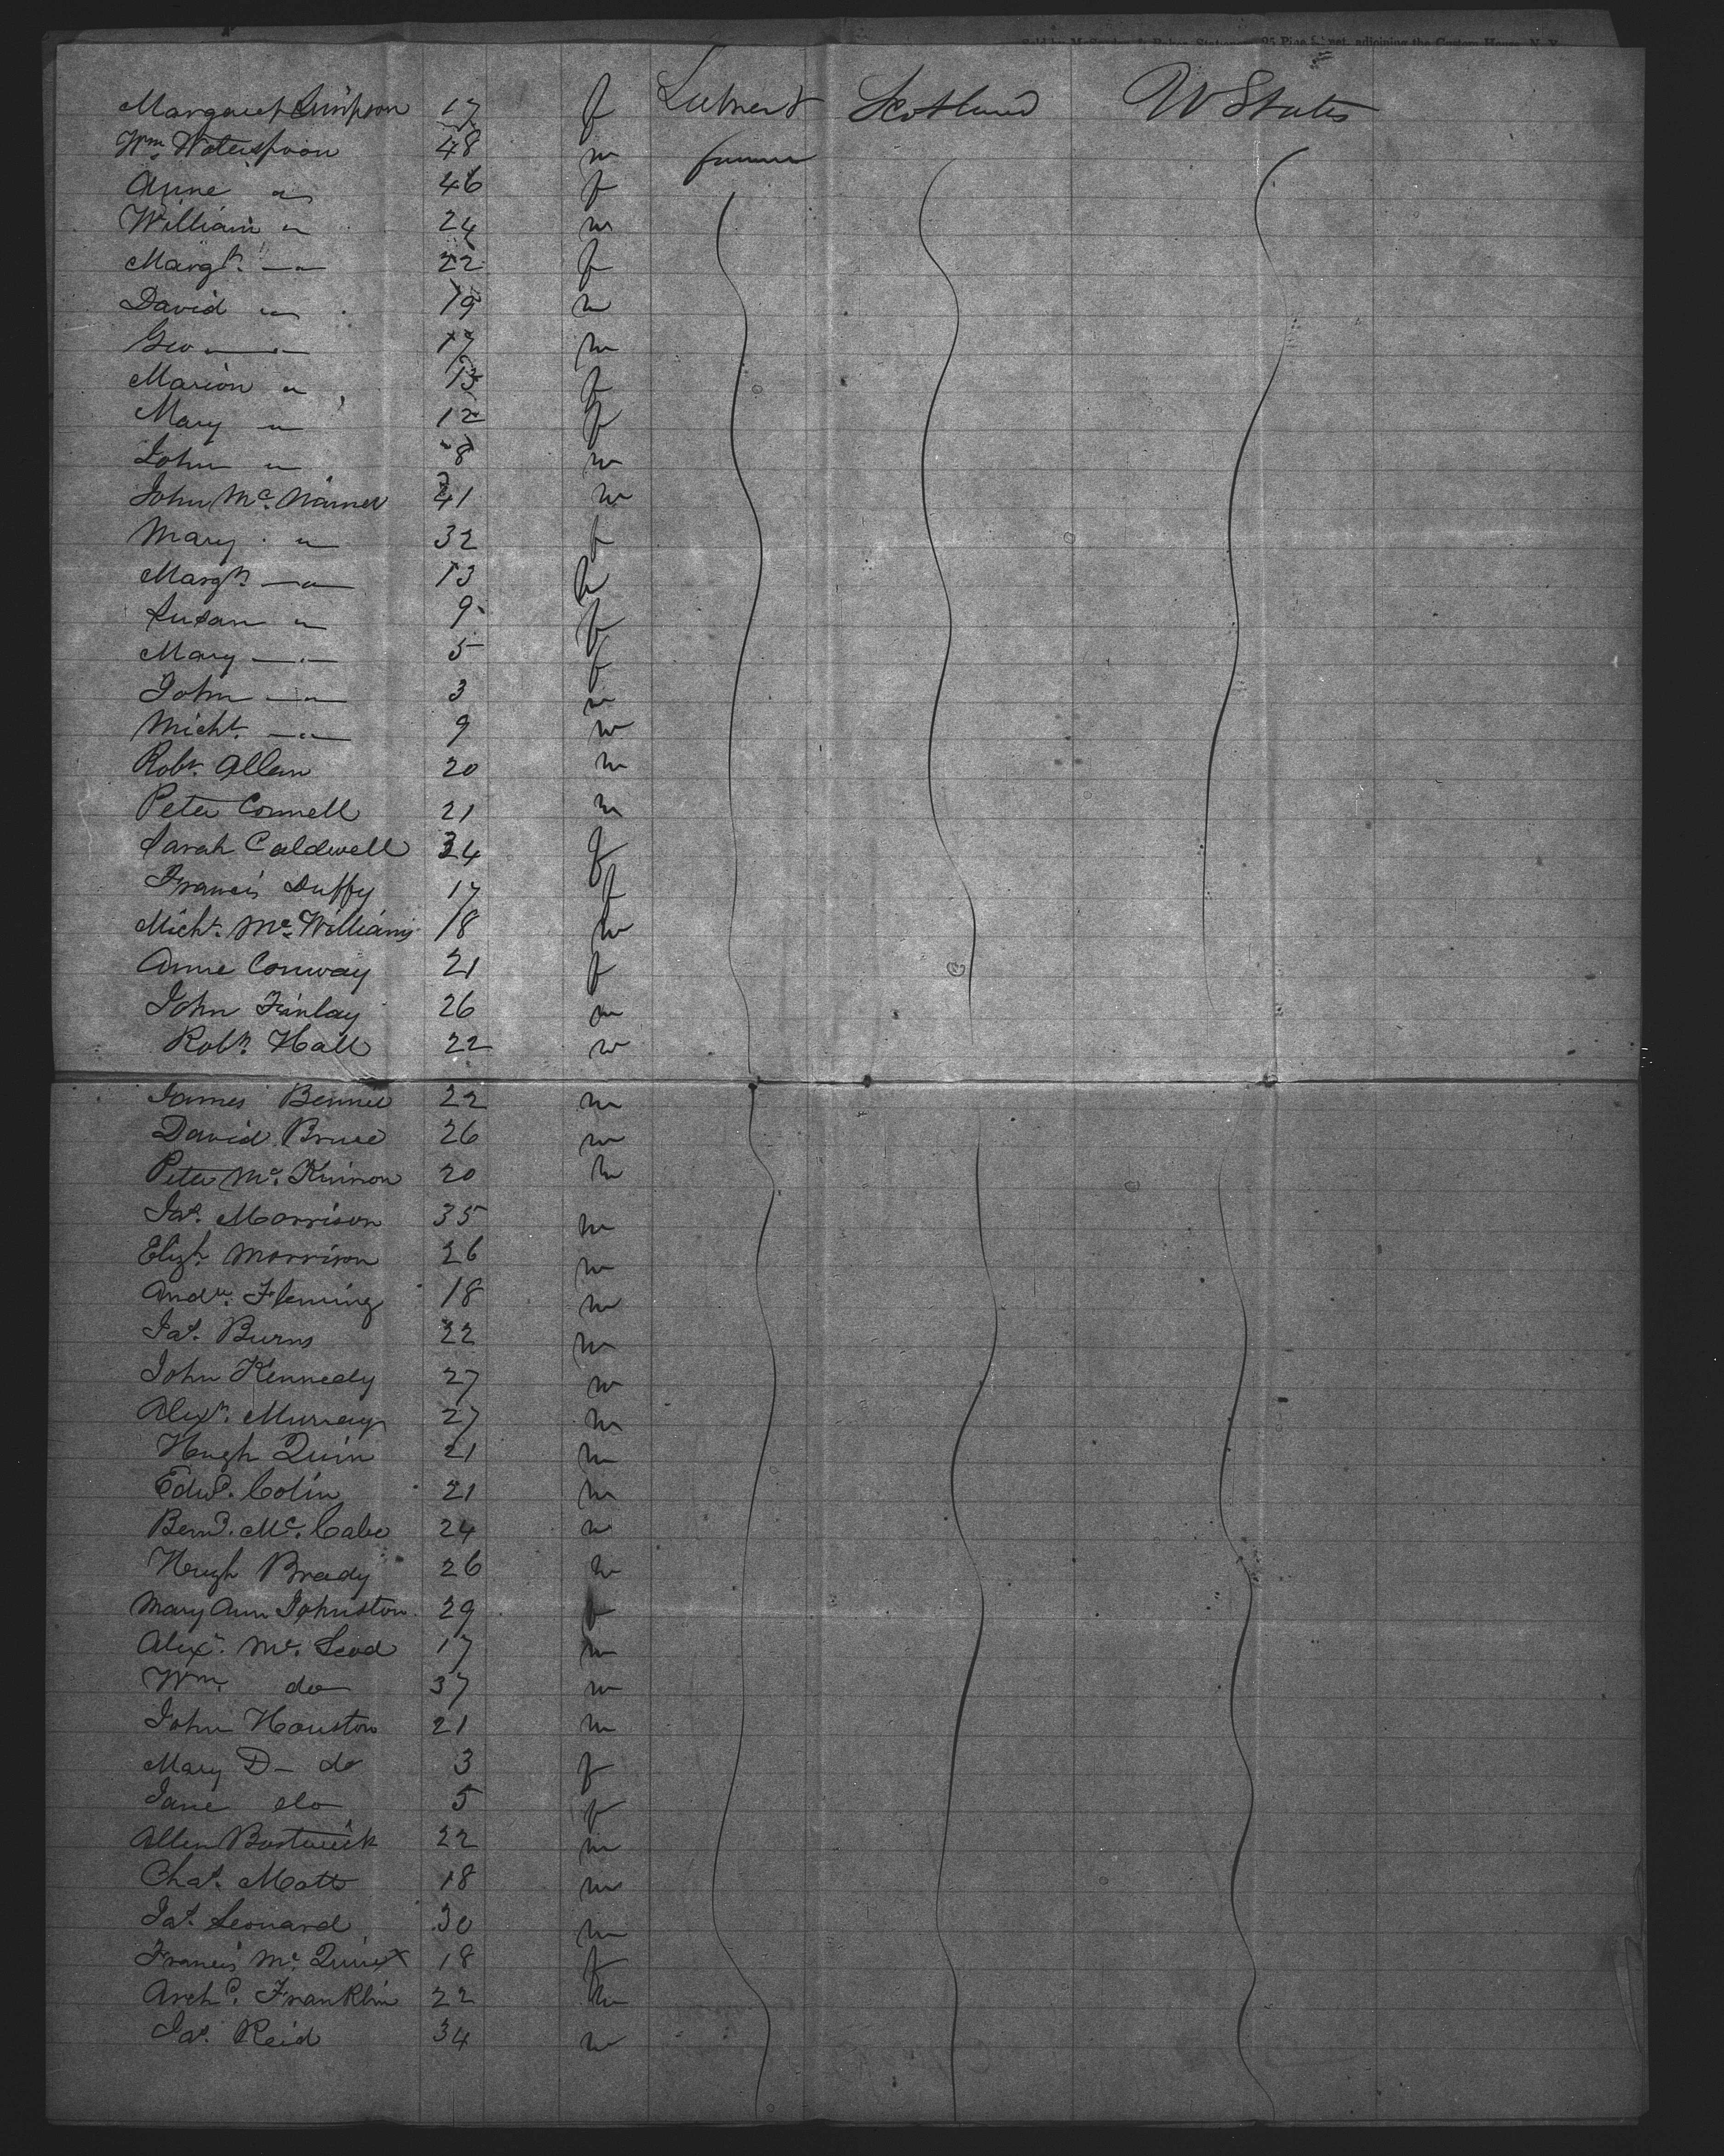 Sold by & Baker, Stationers, 95 Pine Street, adjoining the Custom House, N. Y.
Margaret Simpson 17 f Scotland U States
Wm Woterspoon 48 m farmer
Anne " 46 f
William " 24 m
Margt. " 22 f
David " 19 m
Geo " 17 m
Marion " 15 f
Mary " 12 f
John " 8 m
John Mc. 41 m
Mary " 32 f
Margt. " 13 f
Susan " 9 f
Mary " 5 f
John " 3 m
Michl. " 9 m
Robt. Allan 20 m
Peter Connell 21 m
Sarah Caldwell 34 f
Francis Duffy 17 f
Michl. Mc. Williams 18 m
Anne Conway 21 f
John Finlay 26 m
Robt. Hall 22 m
James Bennie 22 m
David Bruce 26 m
Peter Mc. Kinnon 20 m
Jas. Morrison 35 m
Elizh. Morrison 26 m
Andw. Fleming 18 m
Jas. Burns 22 m
John Kennedy 27 m
Alexr. Murray 27 m
Hugh Quin 21 m
Edwd. Colin 21 m
Bernd. Mc. Cabe 24 m
Hugh Brady 26 m
Mary Ann Johnston 29 f
Alexr. Mc. Leod 17 m
Wm. do 37 m
John Houston 21 m
Mary D - do 3 f
Jane do 5 f
Allen Bostwick 22 m
Chas. Motts 18 m
Jas. Leonard 30 m
Francis Mc. 18 f
Archd. Franklin 22 m
Jas. Reid 34 m